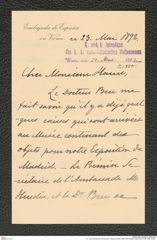 Embajada de España
en Viena
ce 23. Mai 1892.
K. und k. Intendanz
des k. k. naturhistorischen Hofmuseums
Wien
Cher Monsieur
Le Docteur Beer me
fait savoir qu'il y a déjà quel-
ques caisses qui sont arrivées
au Musée contenant des
objets pour notre Exposition de
Madrid. Le Premier Se-
crétaire de l'Ambassade Mr
Heredia, et le Dr Beer se